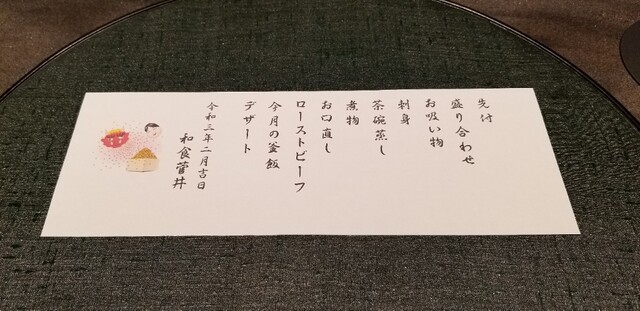 先付
盛り合わせ
お吸い物
刺身
茶碗蒸し
煮物
お口直し
ローストビーフ
今月の釜飯
デザート
令和三年二月吉日
和食菅井